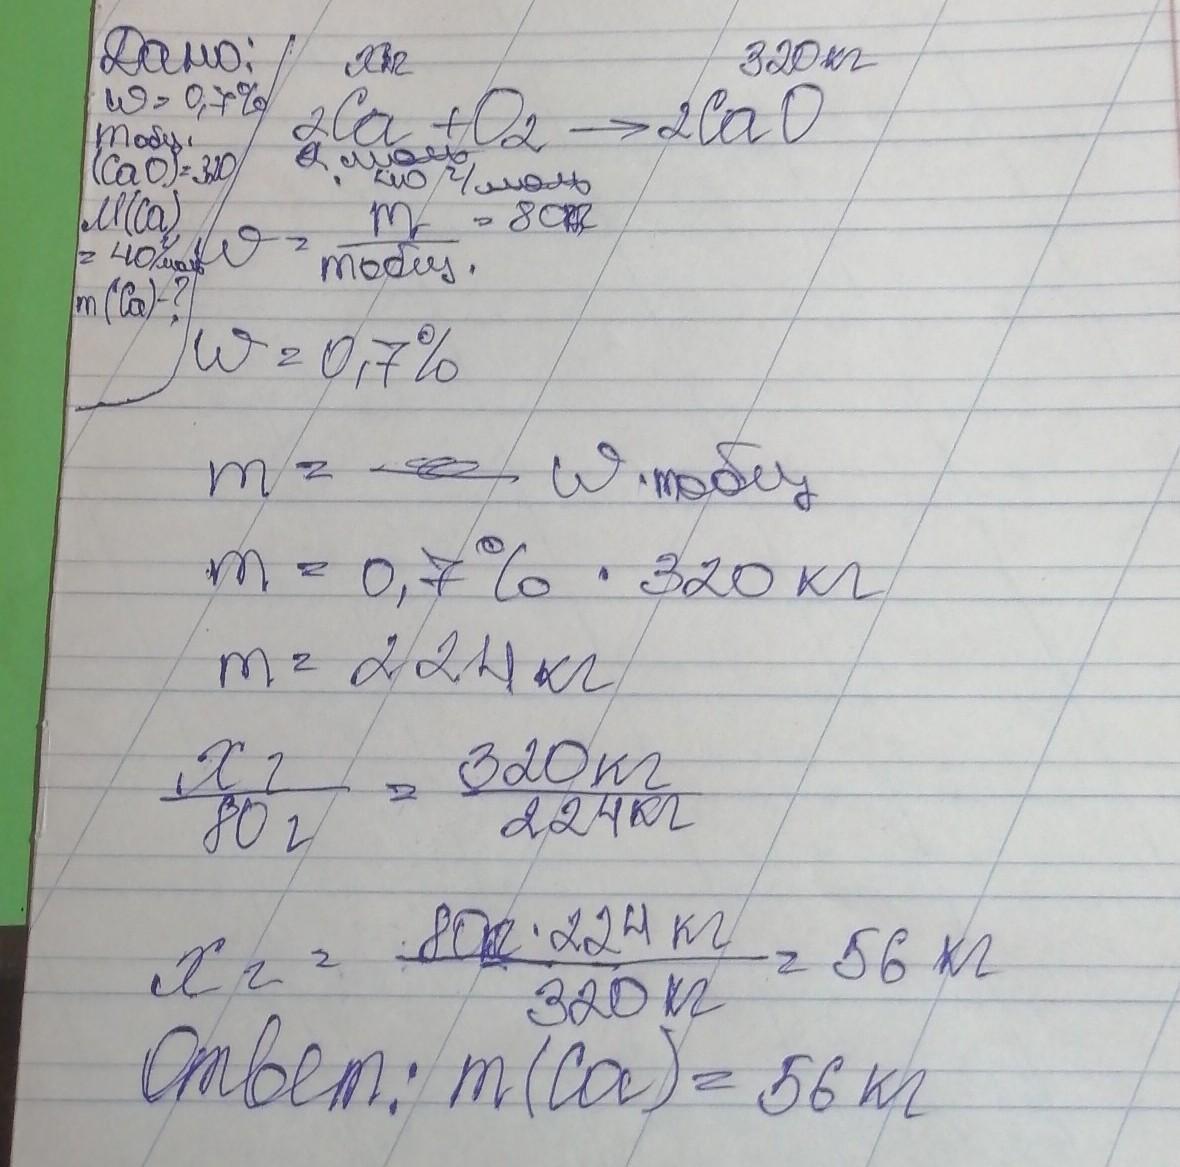 Дано:
w = 0,7%
mобщ.
(CaO)=320
M(Ca)
= 40г/моль
m(Ca)-?
xг 320кг
2Ca + O2 → 2CaO
2 моль
40 г/моль
w = m/mобщ. = 80г
w = 0,7%
m = w·mобщ
m = 0,7% · 320 кг
m = 224 кг
xг/80г = 320кг/224кг
xг = 80г·224 кг/320 кг = 56 кг
Ответ: m(Ca) = 56 кг